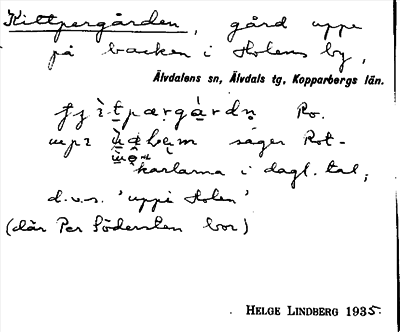 Kittpergården, gård uppe
på backen i Holens by,
Älvdalens sn, Älvdals tg, Kopparbergs län.
Ro.
säger Rot-
karlarna i dagl. tal,
d.v.s. 'uppi Holen'
(där Per Södersten bor)
HELGE LINDBERG 1935.